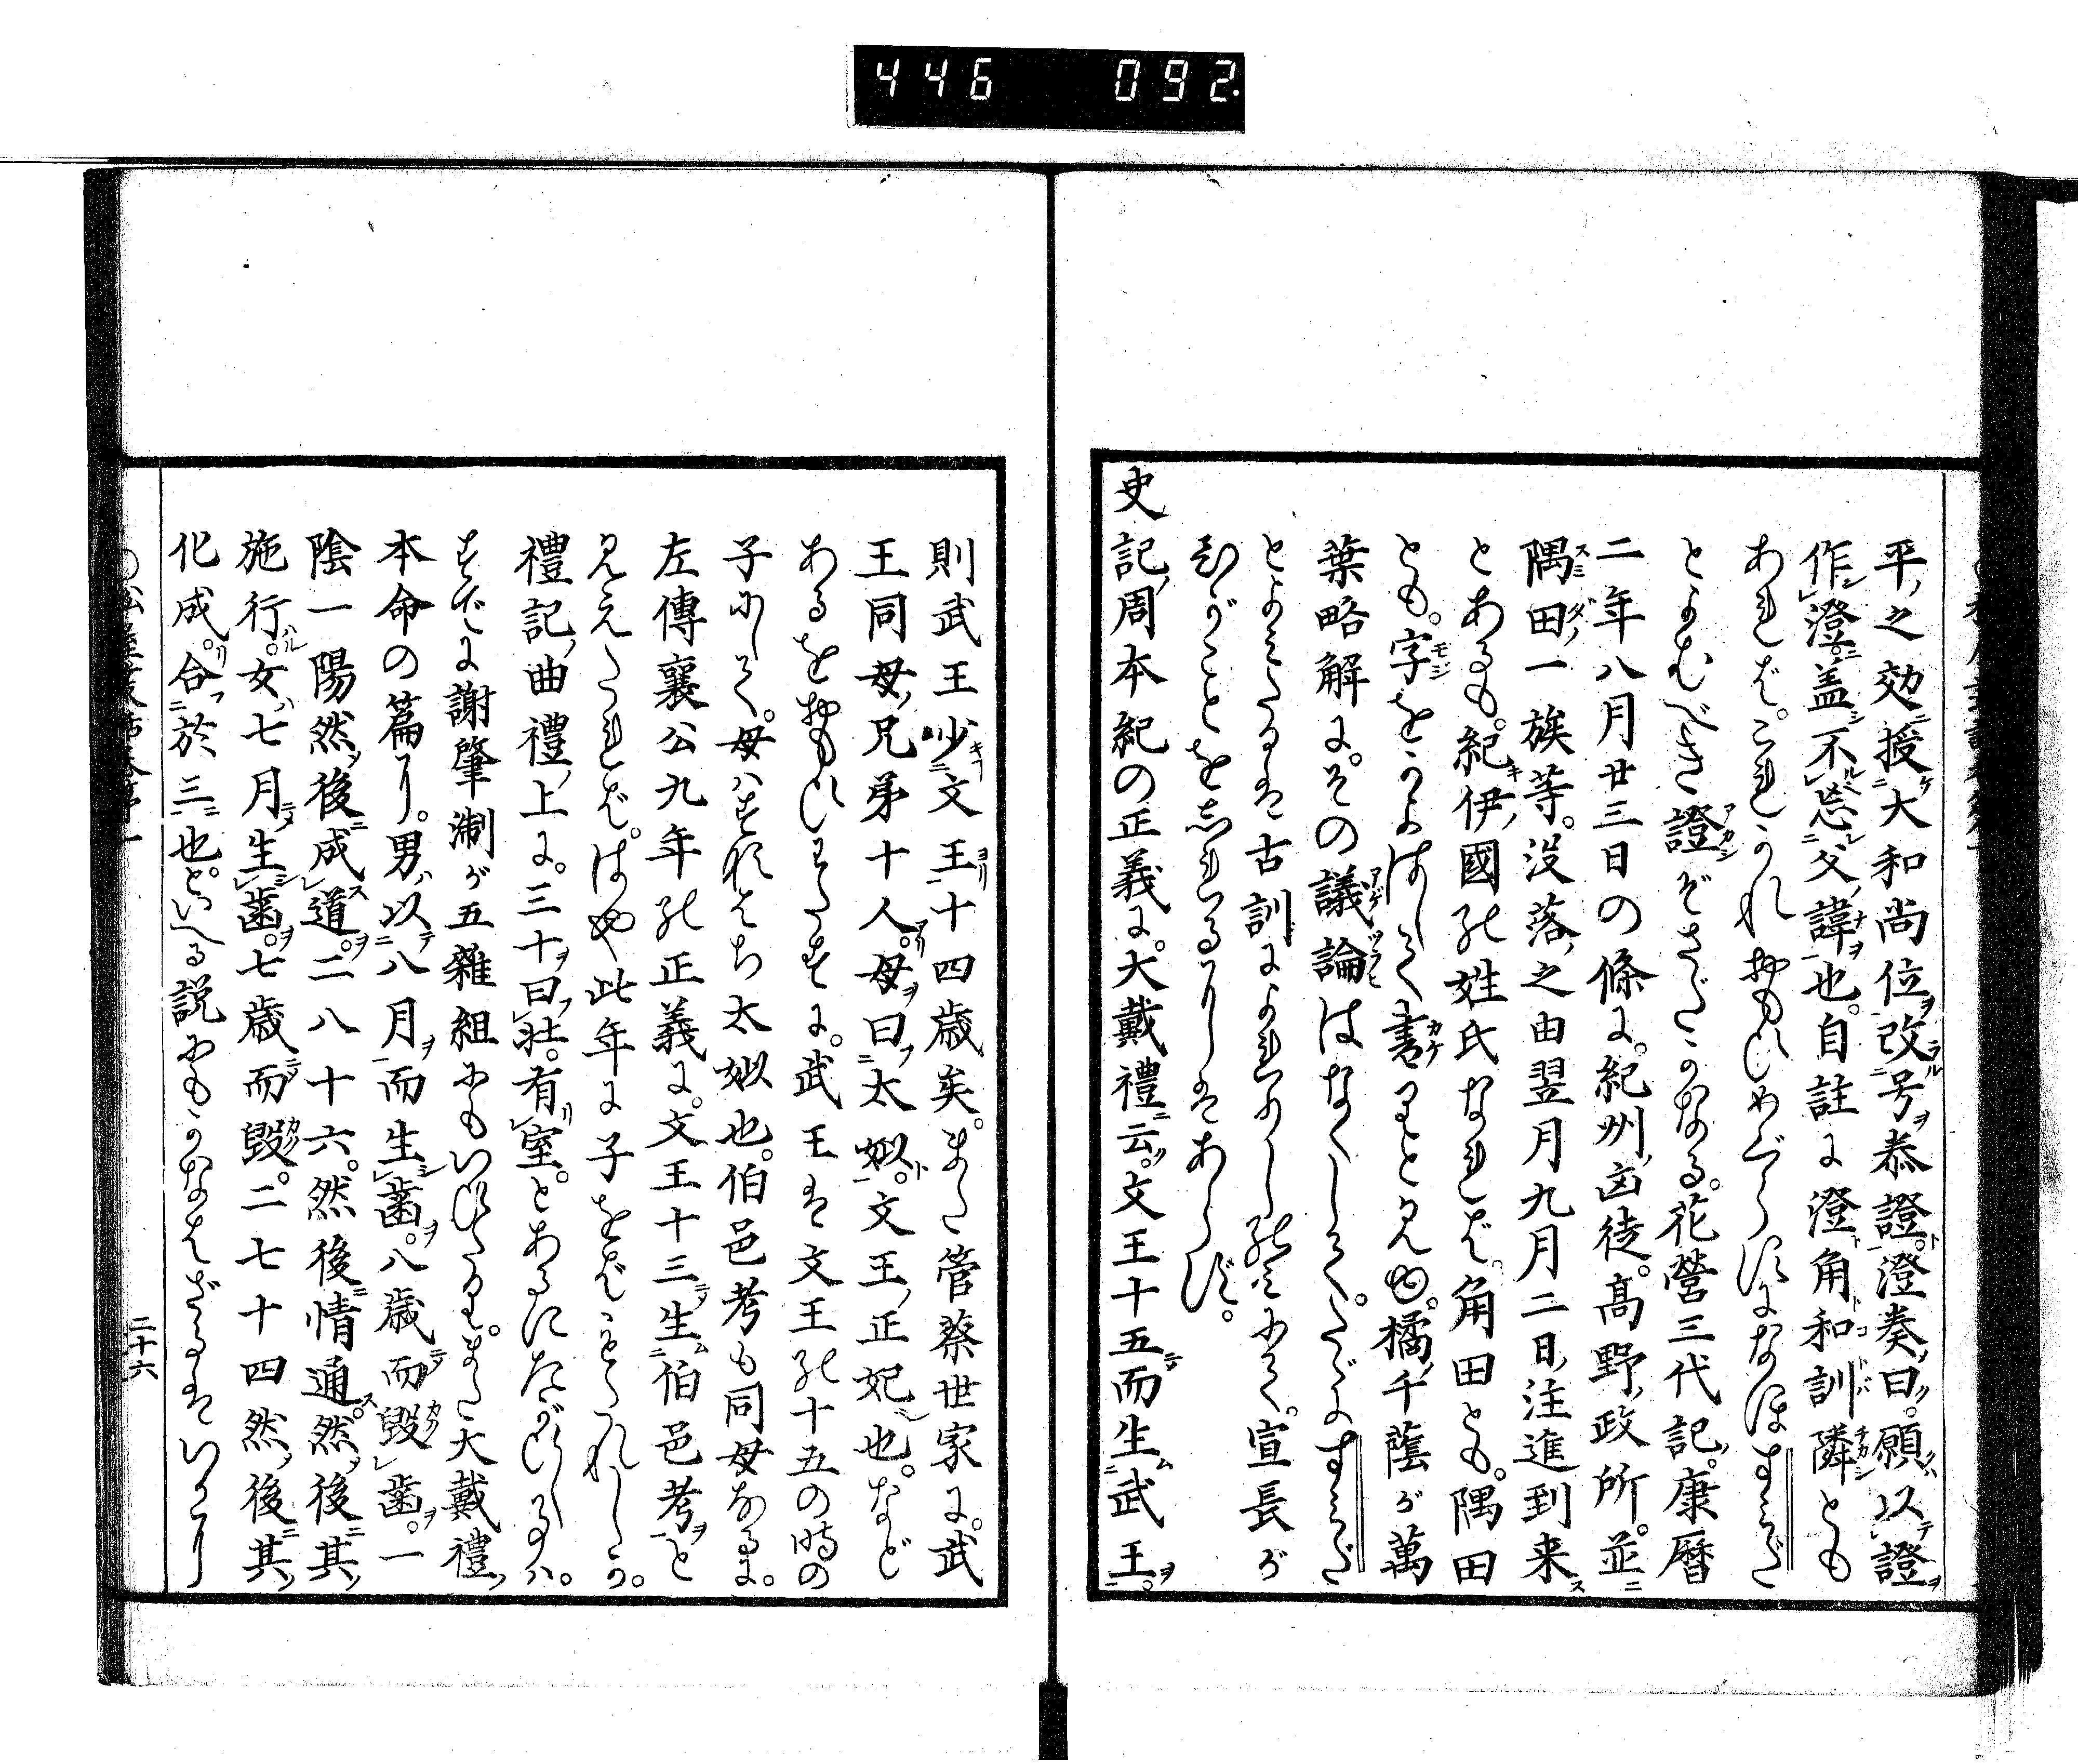 446 092
平之効授大和尚位改号恭證澄奏曰願以證
作澄盖不忘父諱也自註に澄角和訓隣とも
あればこれかれおもひめぐらすになほすみだ
とよむべき證ぞさだかなる花營三代記康暦
二年八月廿三日の條に紀州凶徒高野政所並
隅田一族等没落之由翌月九月二日注進到来
とあるも紀伊國の姓氏なれば角田とも隅田
とも字をかよはして書りとみゆ橘千蔭が萬
葉略解にその議論はなくしてたゞにすみだ
とよみたるは古訓によれるのみにて宣長が
ひがことを志れるりしはあらず
史記周本紀の正義に大戴禮云文王十五而生武王
則武王少文王十四歳矣また管蔡世家に武
王同母兄弟十人母曰太姒文王正妃也など
あるをおもひわたすに武王は文王の十五の時の
子にして母はすなはち太姒也伯邑考も同母なるに
左傳襄公九年の正義に文王十三生伯邑考と
みえたればはや此年に子をばまうけられしか
禮記曲禮上に三十曰壮有室とあるにたがへるは
すでに謝肇淛が五雜組にもいひたりまた大戴禮
本命の篇に男以八月而生歯八歳而毀歯一
陰一陽然後成道二八十六然後情通然後其
施行女七月生歯七歳而毀二七十四然後其
化成合於三也といへる説にもかなはざるはいかに
二十六